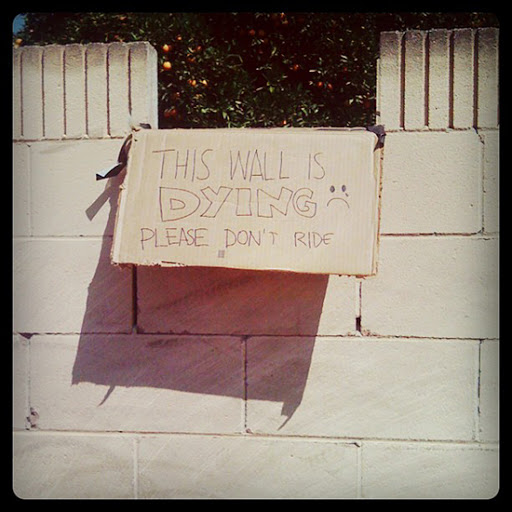 THIS WALL IS
DYING
PLEASE DON'T RIDE